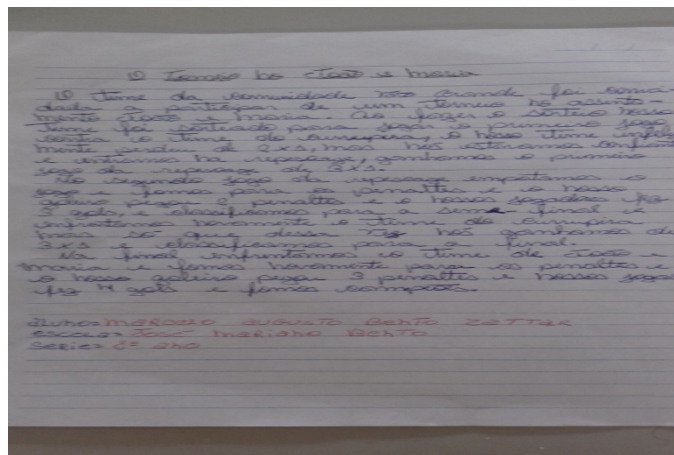 O Torneio no João e maria
O time da comunidade rio Grande foi convi-
dado a participar de um torneio no assenta-
mento João e maria. Ao fazer o sorteio nosso
time foi sorteado para jogar o primeiro jogo
contra o time do o nosso time infeliz
mente perdeu de 2x1, mas nós estávamos confiante
e entramos na repescage, ganhamos o primeiro
jogo da repescage de 3x1.
No segundo jogo da repescage empatamos o
jogo e fomos para os penaltes e o nosso
goleiro pegou 2 penaltes e o nossos jogadores fez
3 gols, e classificamos para a semi final e
enfrontamos novamente o time do
mais só que dessa vez nós ganhamos de
3x1 e classificamos para a final.
Na final enfrentamos o time de João e
maria e fomos novamente para os penaltes e
o nosso goleiro pegou 3 penaltes e nossos jogad
fez 4 gols e fomos campeões.
aluno= marcelo augusto Bento
escola= José mariano Bento
serie= 8º ano